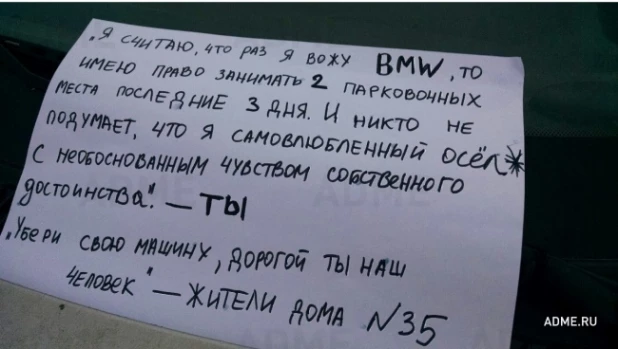 „Я СЧИТАЮ, ЧТО РАЗ Я ВОЖУ BMW, ТО
ИМЕЮ ПРАВО ЗАНИМАТЬ 2 ПАРКОВОЧНЫХ
МЕСТА ПОСЛЕДНИЕ 3 ДНЯ. И НИКТО НЕ
ПОДУМАЕТ, ЧТО Я САМОВЛЮБЛЕННЫЙ ОСЁЛ*
С НЕОБОСНОВАННЫМ ЧУВСТВОМ СОБСТВЕННОГО
ДОСТОИНСТВА". — ТЫ
„УБЕРИ СВОЮ МАШИНУ, ДОРОГОЙ ТЫ НАШ
ЧЕЛОВЕК" — ЖИТЕЛИ ДОМА №35
ADME.RU